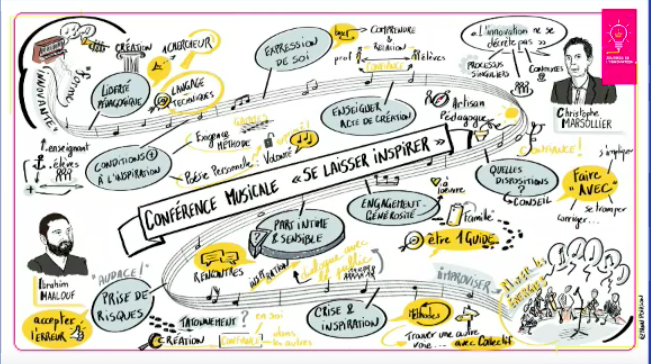 CRÉATION
1 CHERCHEUR
"forme
innovante"
LIBERTÉ
PÉDAGOGIQUE
LANGAGE
TECHNIQUES
EXPRESSION
DE SOI
COMPRENDRE
&
RELATION
prof
élèves
CONFIANCE
« L'innovation ne se
décrète pas »
PROCESSUS
SINGULIERS
CONTEXTES
JOURNÉE DE
L'INNOVATION
Christophe
MARSOLLIER
ENSEIGNER
ACTE DE CRÉATION
Artisan
Pédagogue
1 enseignant
élèves
CONDITIONS
À L'INSPIRATION
Exigence
MÉTHODE
GAMMES
Poésie Personnelle
Volonté
CONFÉRENCE MUSICALE « SE LAISSER INSPIRER »
CONFIANCE!
QUELLES
DISPOSITIONS
?
CONSEIL
s'impliquer
Faire
"AVEC"
se tromper
corriger...
ENGAGEMENT
GÉNÉROSITÉ
à
l'œuvre
Famille
être 1 GUIDE
PART INTIME
& SENSIBLE
RENCONTRES
INSPIRATION
dialogue avec
le public
Ibrahim
MAALOUF
"AUDACE!"
PRISE DE
RISQUES
accepter
l'ERREUR
TATONNEMENT ?
CRÉATION
CONFIANCE
en soi
dans
les autres
CRISE &
INSPIRATION
IMPROVISER
Méthodes
Trouver une autre
voie... avec Collectif